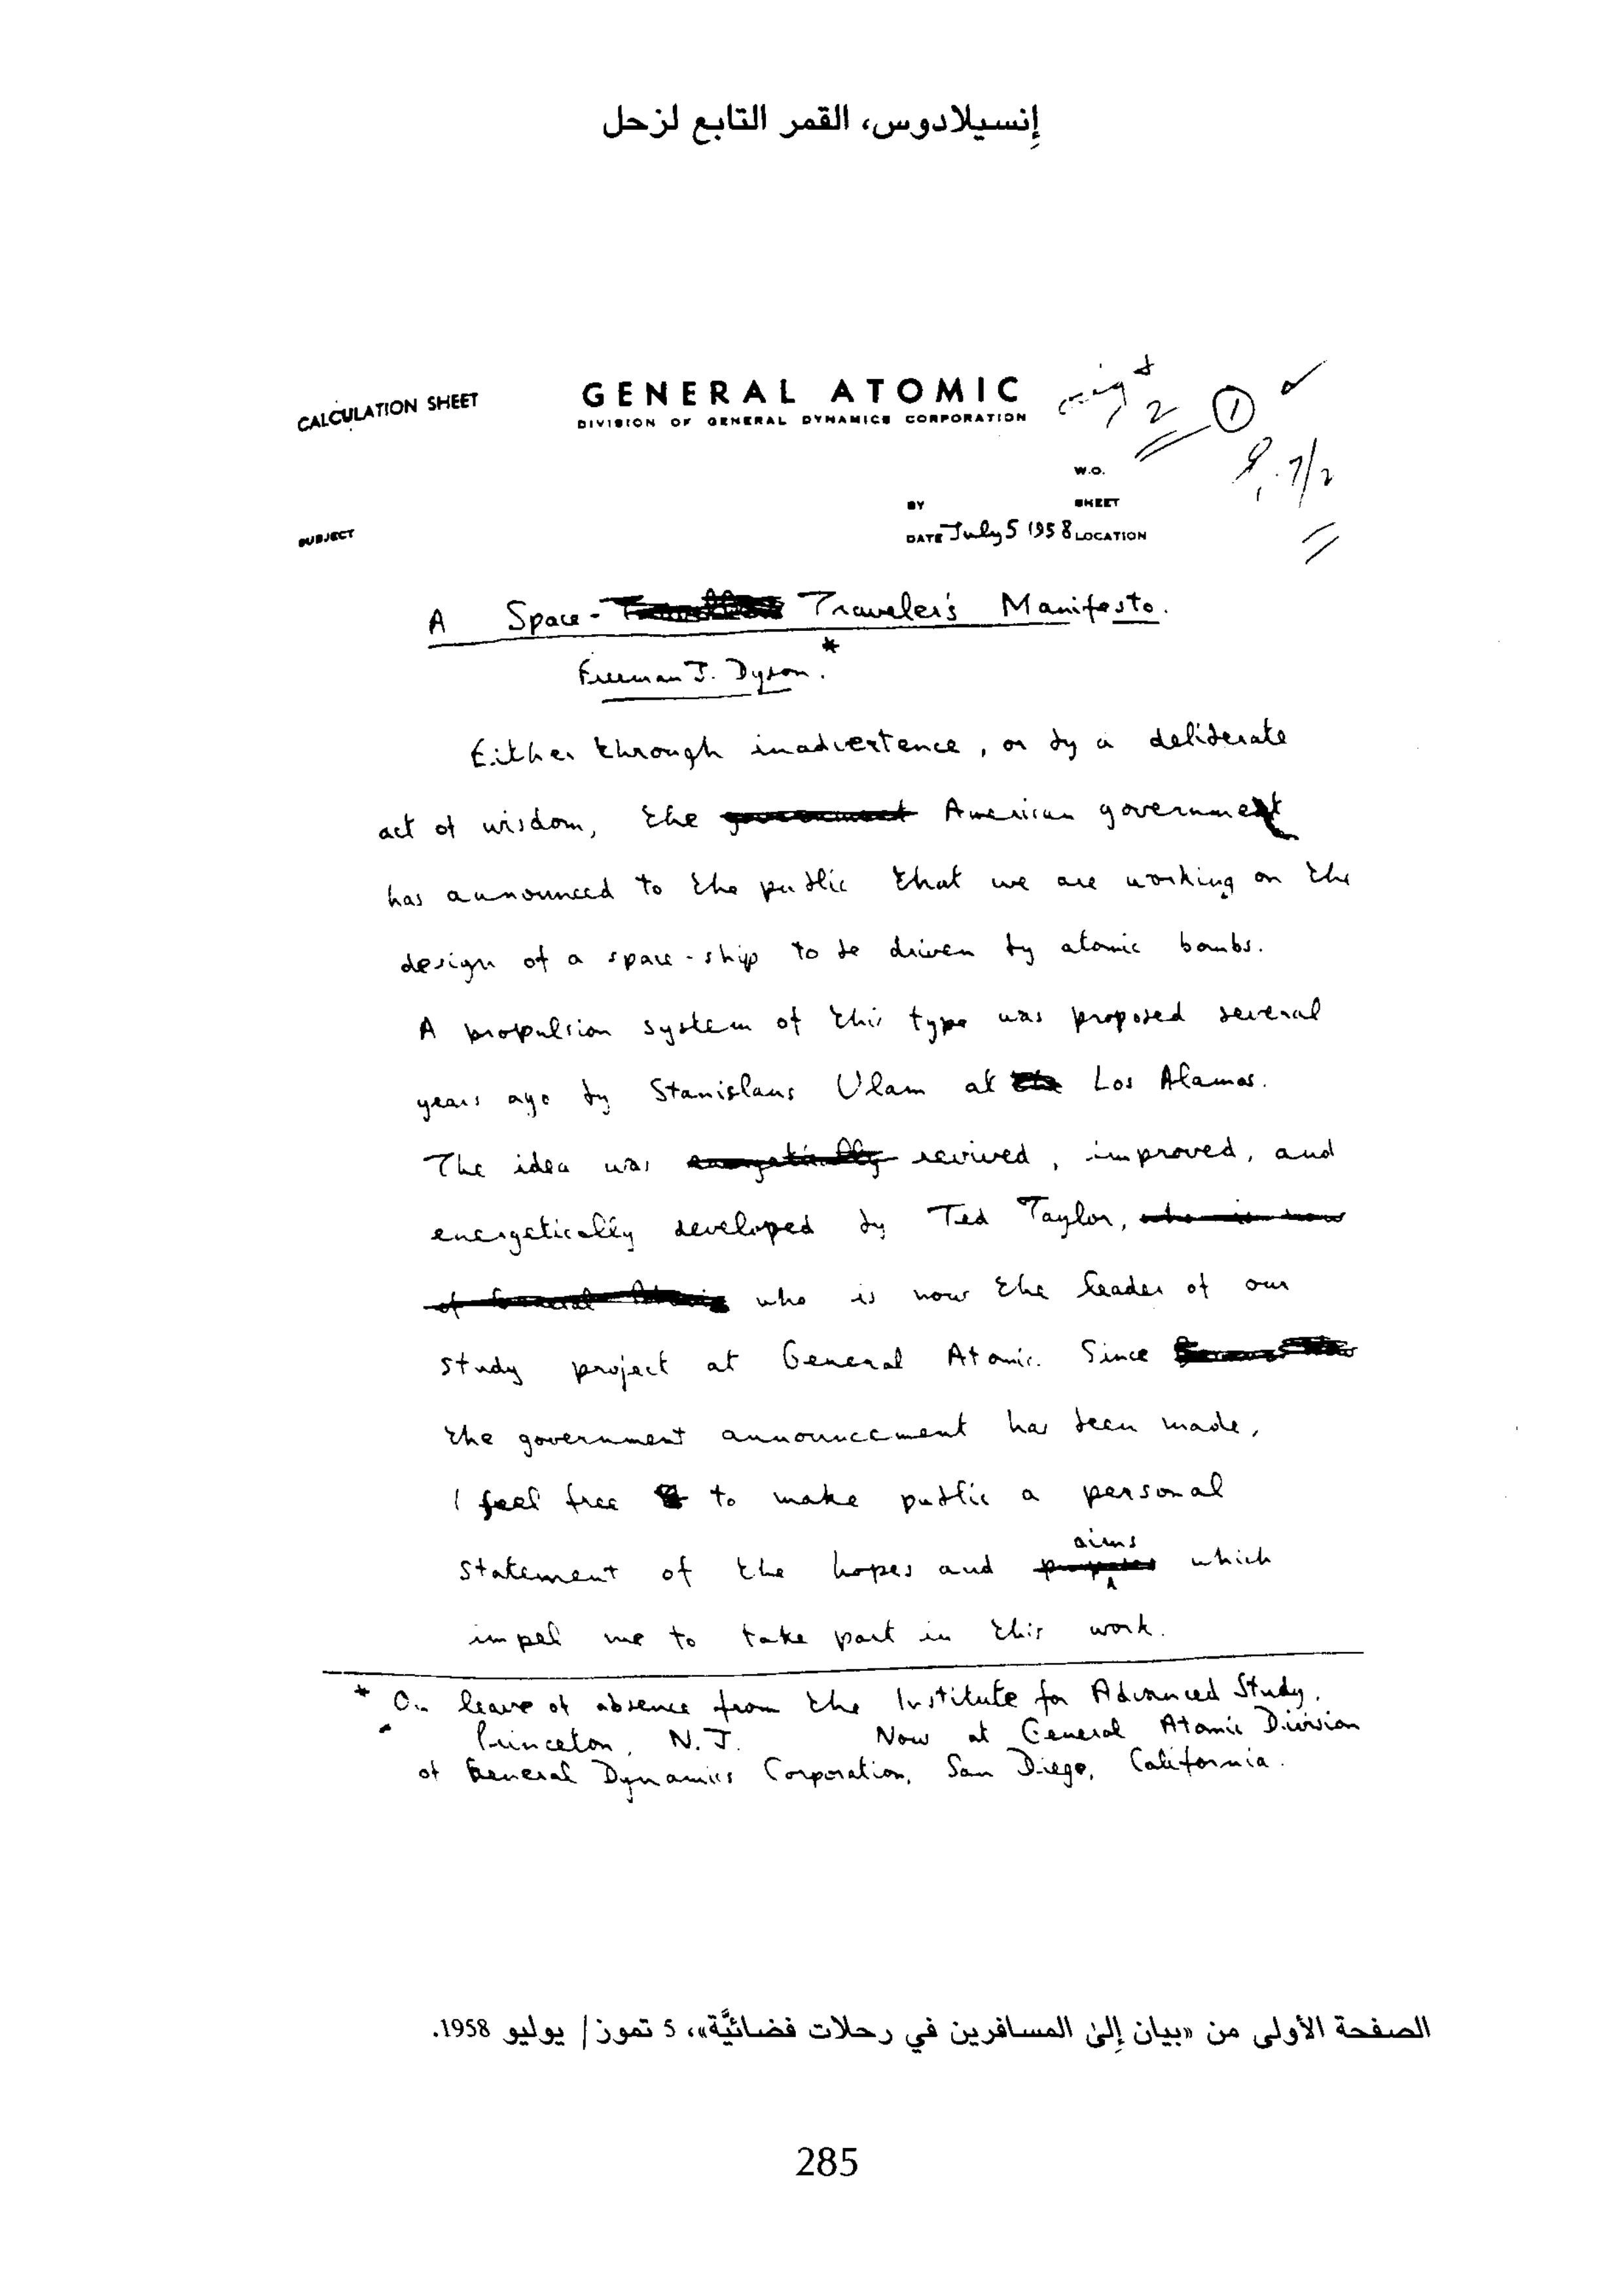 إنسيلادوس، القمر التابع لزحل
CALCULATION SHEET
GENERAL ATOMIC
DIVISION OF GENERAL DYNAMICS CORPORATION
2 1
W.O.
7/2
BY SHEET
SUBJECT
DATE July 5 1958 LOCATION
A Space- Traveler's Manifesto.
Freeman J. Dyson.*
Either through inadvertence, or by a deliberate
act of wisdom, the government American government
has announced to the public that we are working on the
design of a space-ship to be driven by atomic bombs.
A propulsion system of this type was proposed several
years ago by Stanislaus Ulam at the Los Alamos.
The idea was energetically revived, improved, and
energetically developed by Ted Taylor, who is now
of General Atomic who is now the leader of our
study project at General Atomic. Since
the government announcement has been made,
I feel free to make public a personal
aims
statement of the hopes and purposes which
impel me to take part in this work.
* On leave of absence from the Institute for Advanced Study,
Princeton, N.J. Now at General Atomic Division
of General Dynamics Corporation, San Diego, California.
الصفحة الأولى من «بيان إلىٰ المسافرين في رحلات فضائيَّة»، 5 تموز/ يوليو 1958.
285